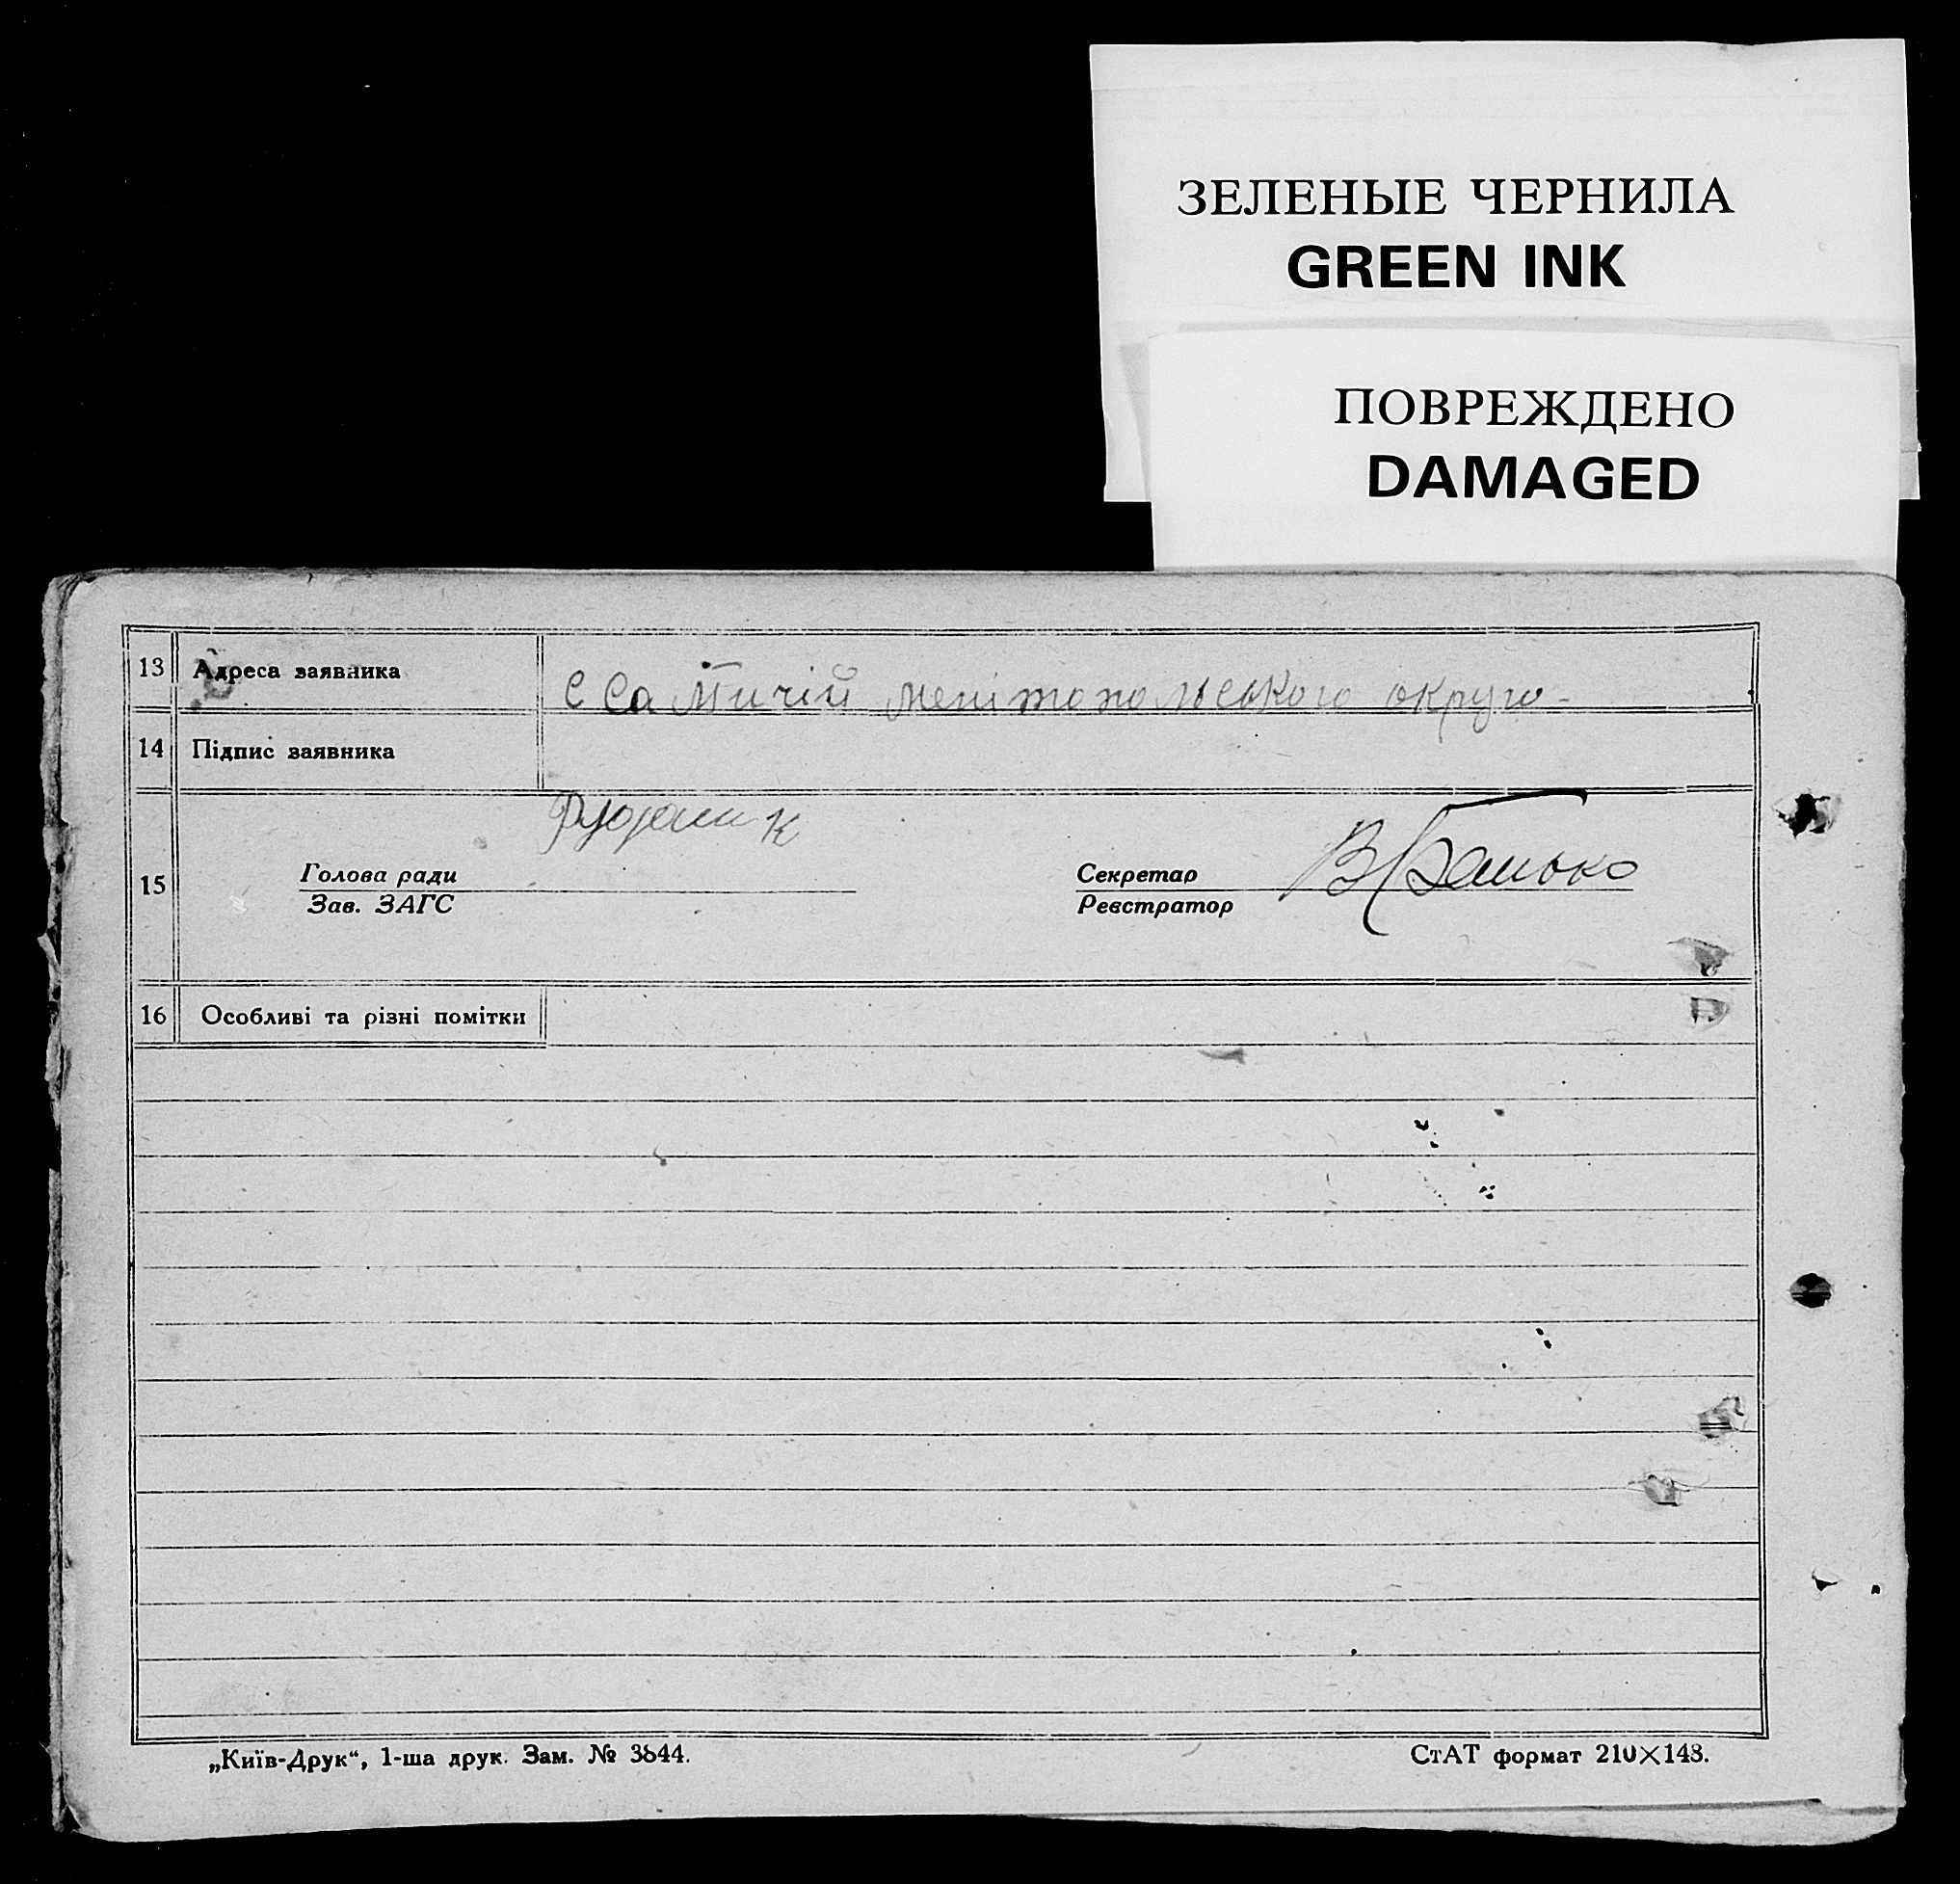 ЗЕЛЕНЫЕ ЧЕРНИЛА
GREEN INK
ПОВРЕЖДЕНО
DAMAGED
13 Адреса заявника с мелітопольського округо-
14 Підпис заявника
15 Голова ради
Зав. ЗАГС
Секретар
Реєстратор
16 Особливі та різні помітки
„Київ-Друк“, 1-ша друк. Зам. № 3844.
СтАТ формат 210×148.